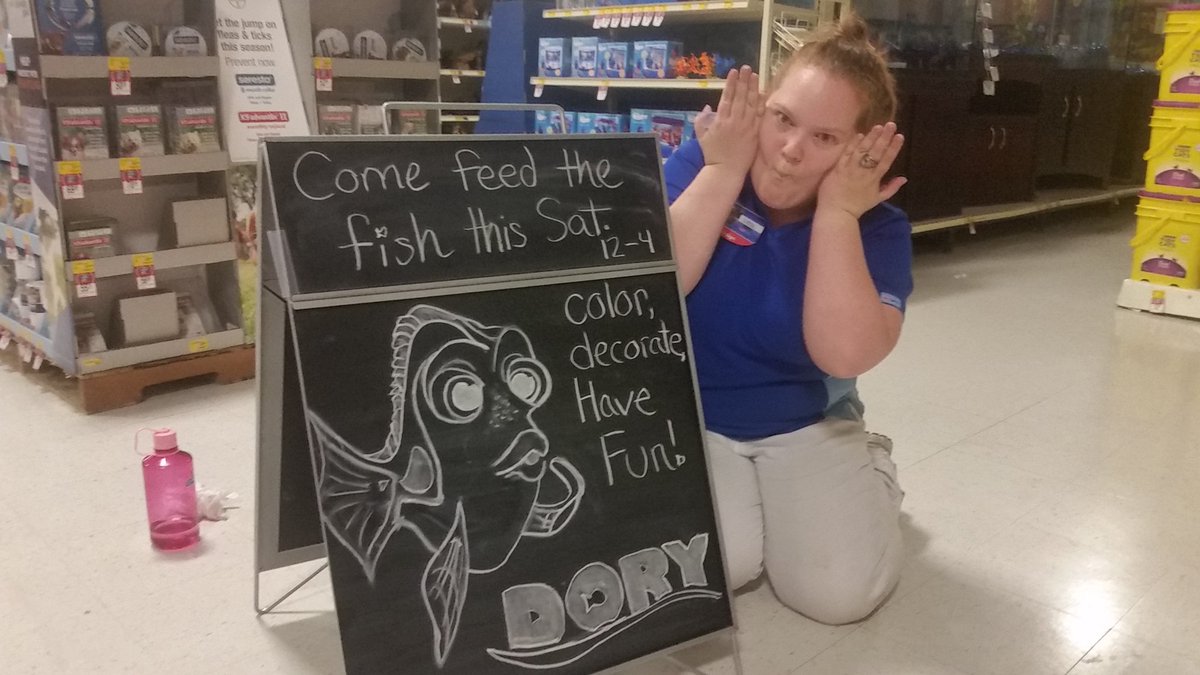 et the jump on
fleas & ticks
this season!
Prevent now.
seresto
K9advantix II
Come feed the
fish this Sat.
12-4
color,
decorate,
Have
Fun!
DORY